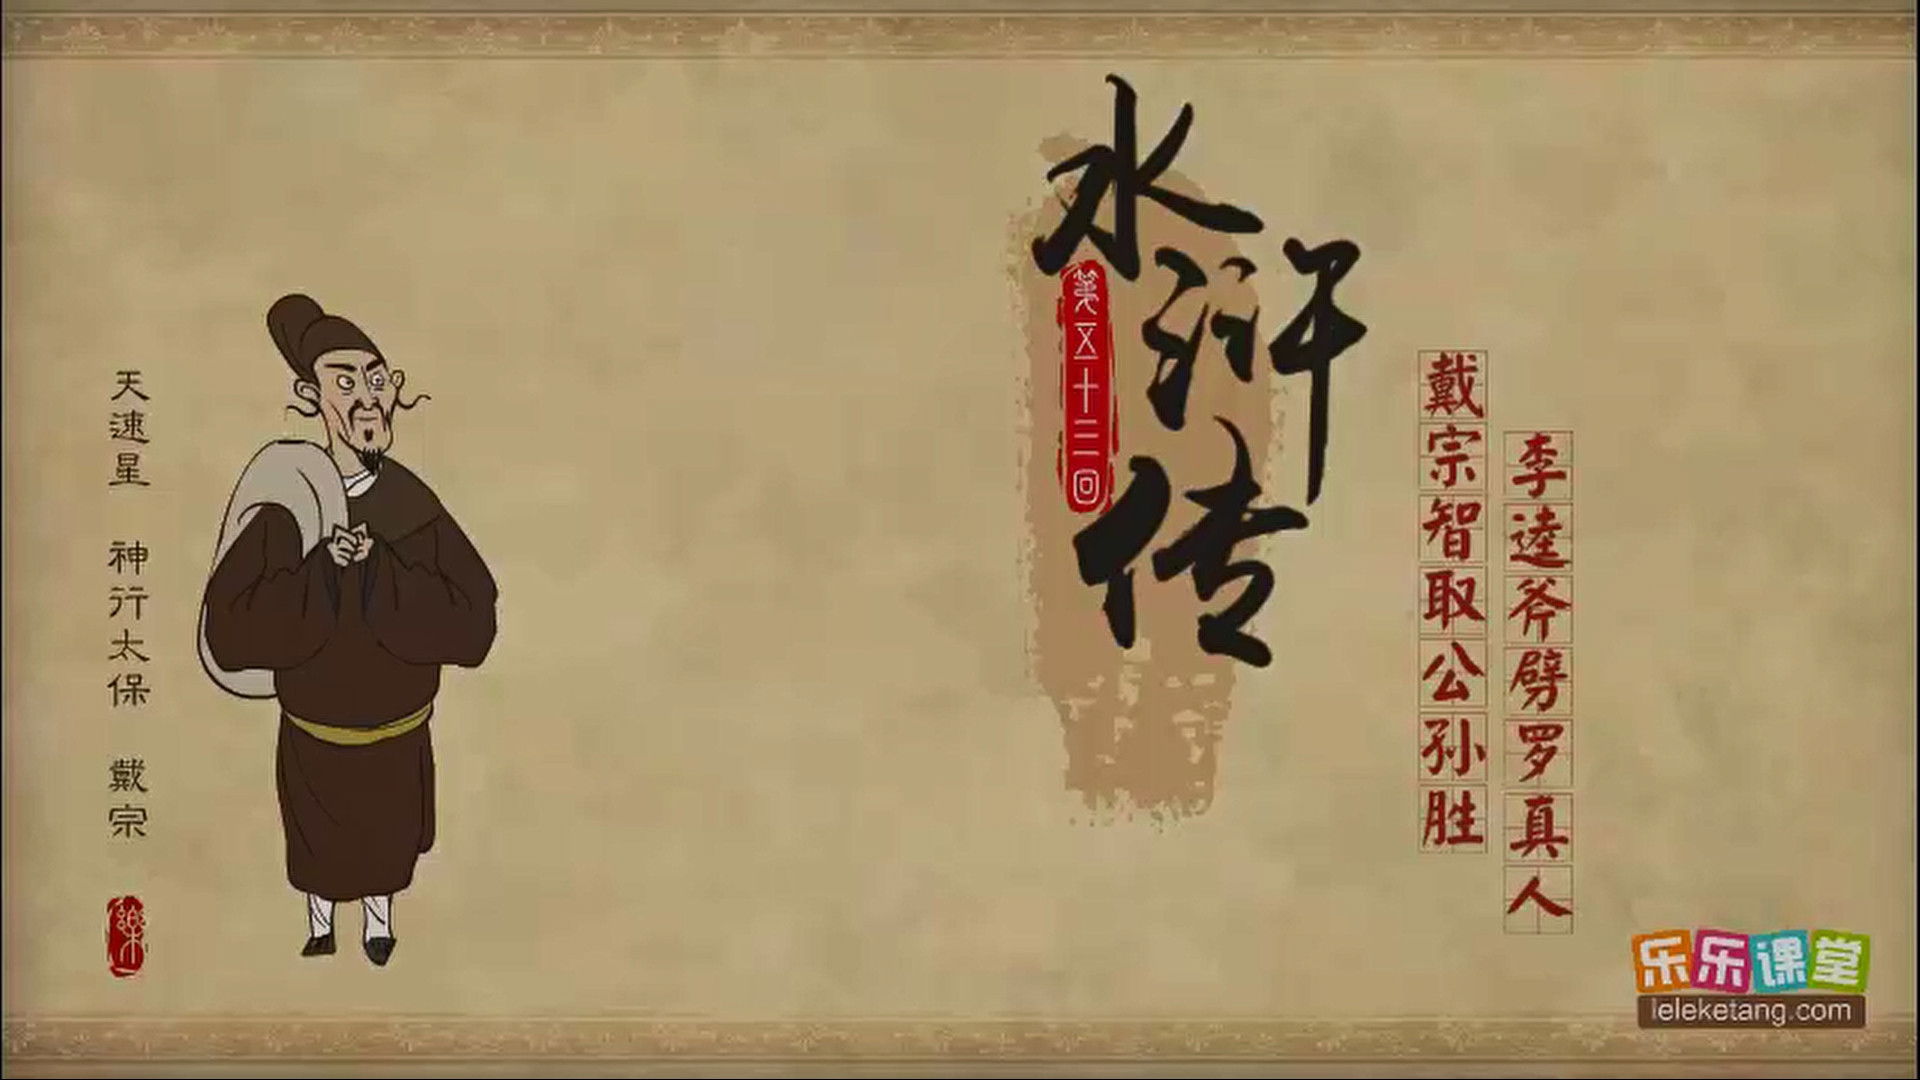 天速星 神行太保 戴宗
樂
水浒传
第五十三回
戴宗智取公孙胜
李逵斧劈罗真人
乐乐课堂
leleketang.com